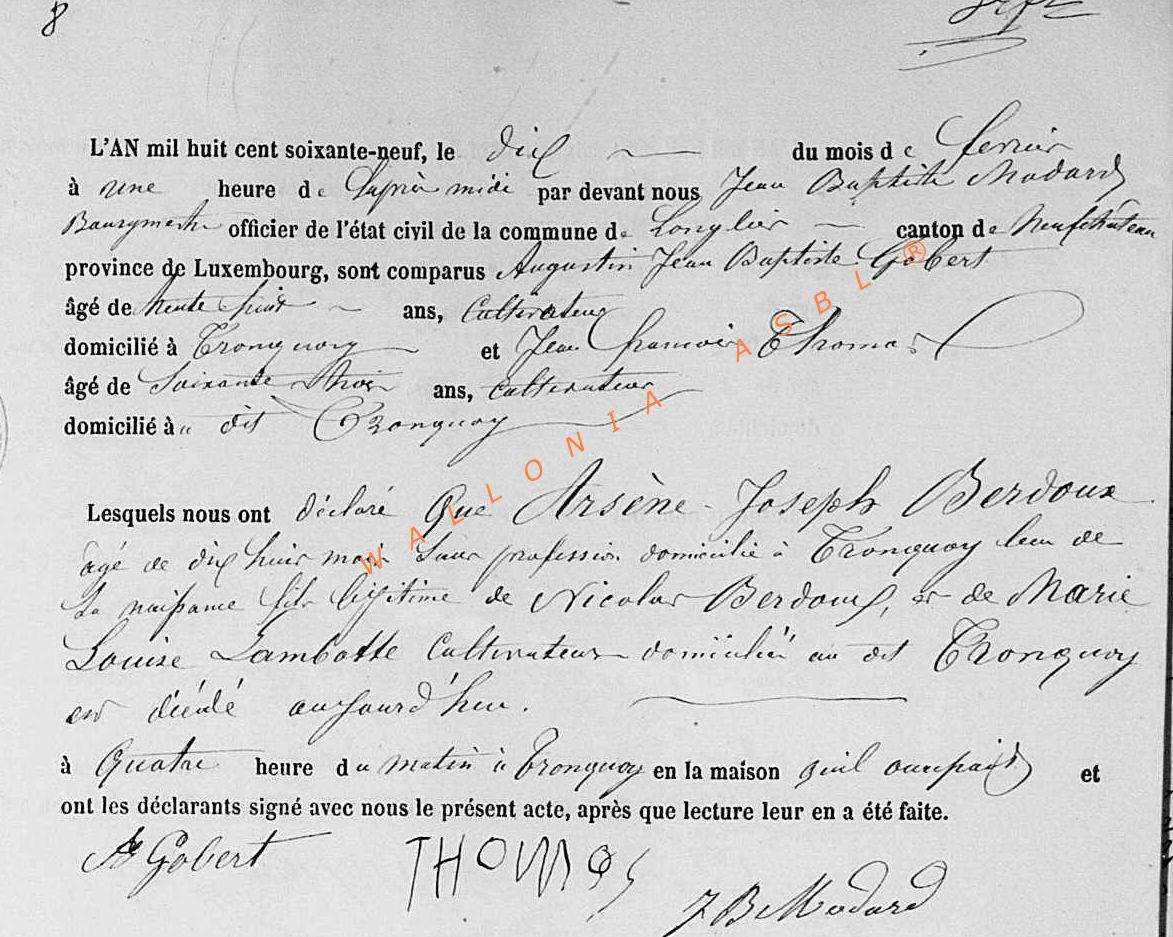 8
L'AN mil huit cent soixante-neuf, le dix du mois de fevrier
à une heure de laprès midi par devant nous Jean Baptiste Modard
Bourgmestre officier de l'état civil de la commune de Longlier canton de Neufchâteau
province de Luxembourg, sont comparus Augustin Jean Baptiste Gobert
âgé de trente huit ans, Cultivateur
domicilié à Tronquoy et Jean francois Thomas
âgé de Soixante trois ans, cultivateur
domicilié à u dit Tronquoy
Lesquels nous ont déclaré Que Arsène-Joseph Berdoux
agé de dix huit mois Sans profession domicilié à Tronquoy lieu de
Sa naissance fils légitime de Nicolas Berdoux, et de Marie
Louise Lambotte Cultivateurs domiciliés au dit Tronquoy
est décédé aujourd'hui.
à Quatre heure du matin à Tronquoy en la maison quil occupait et
ont les déclarants signé avec nous le présent acte, après que lecture leur en a été faite.
A Gobert THOMAS JB Modard
WALLONIA ASBL ®